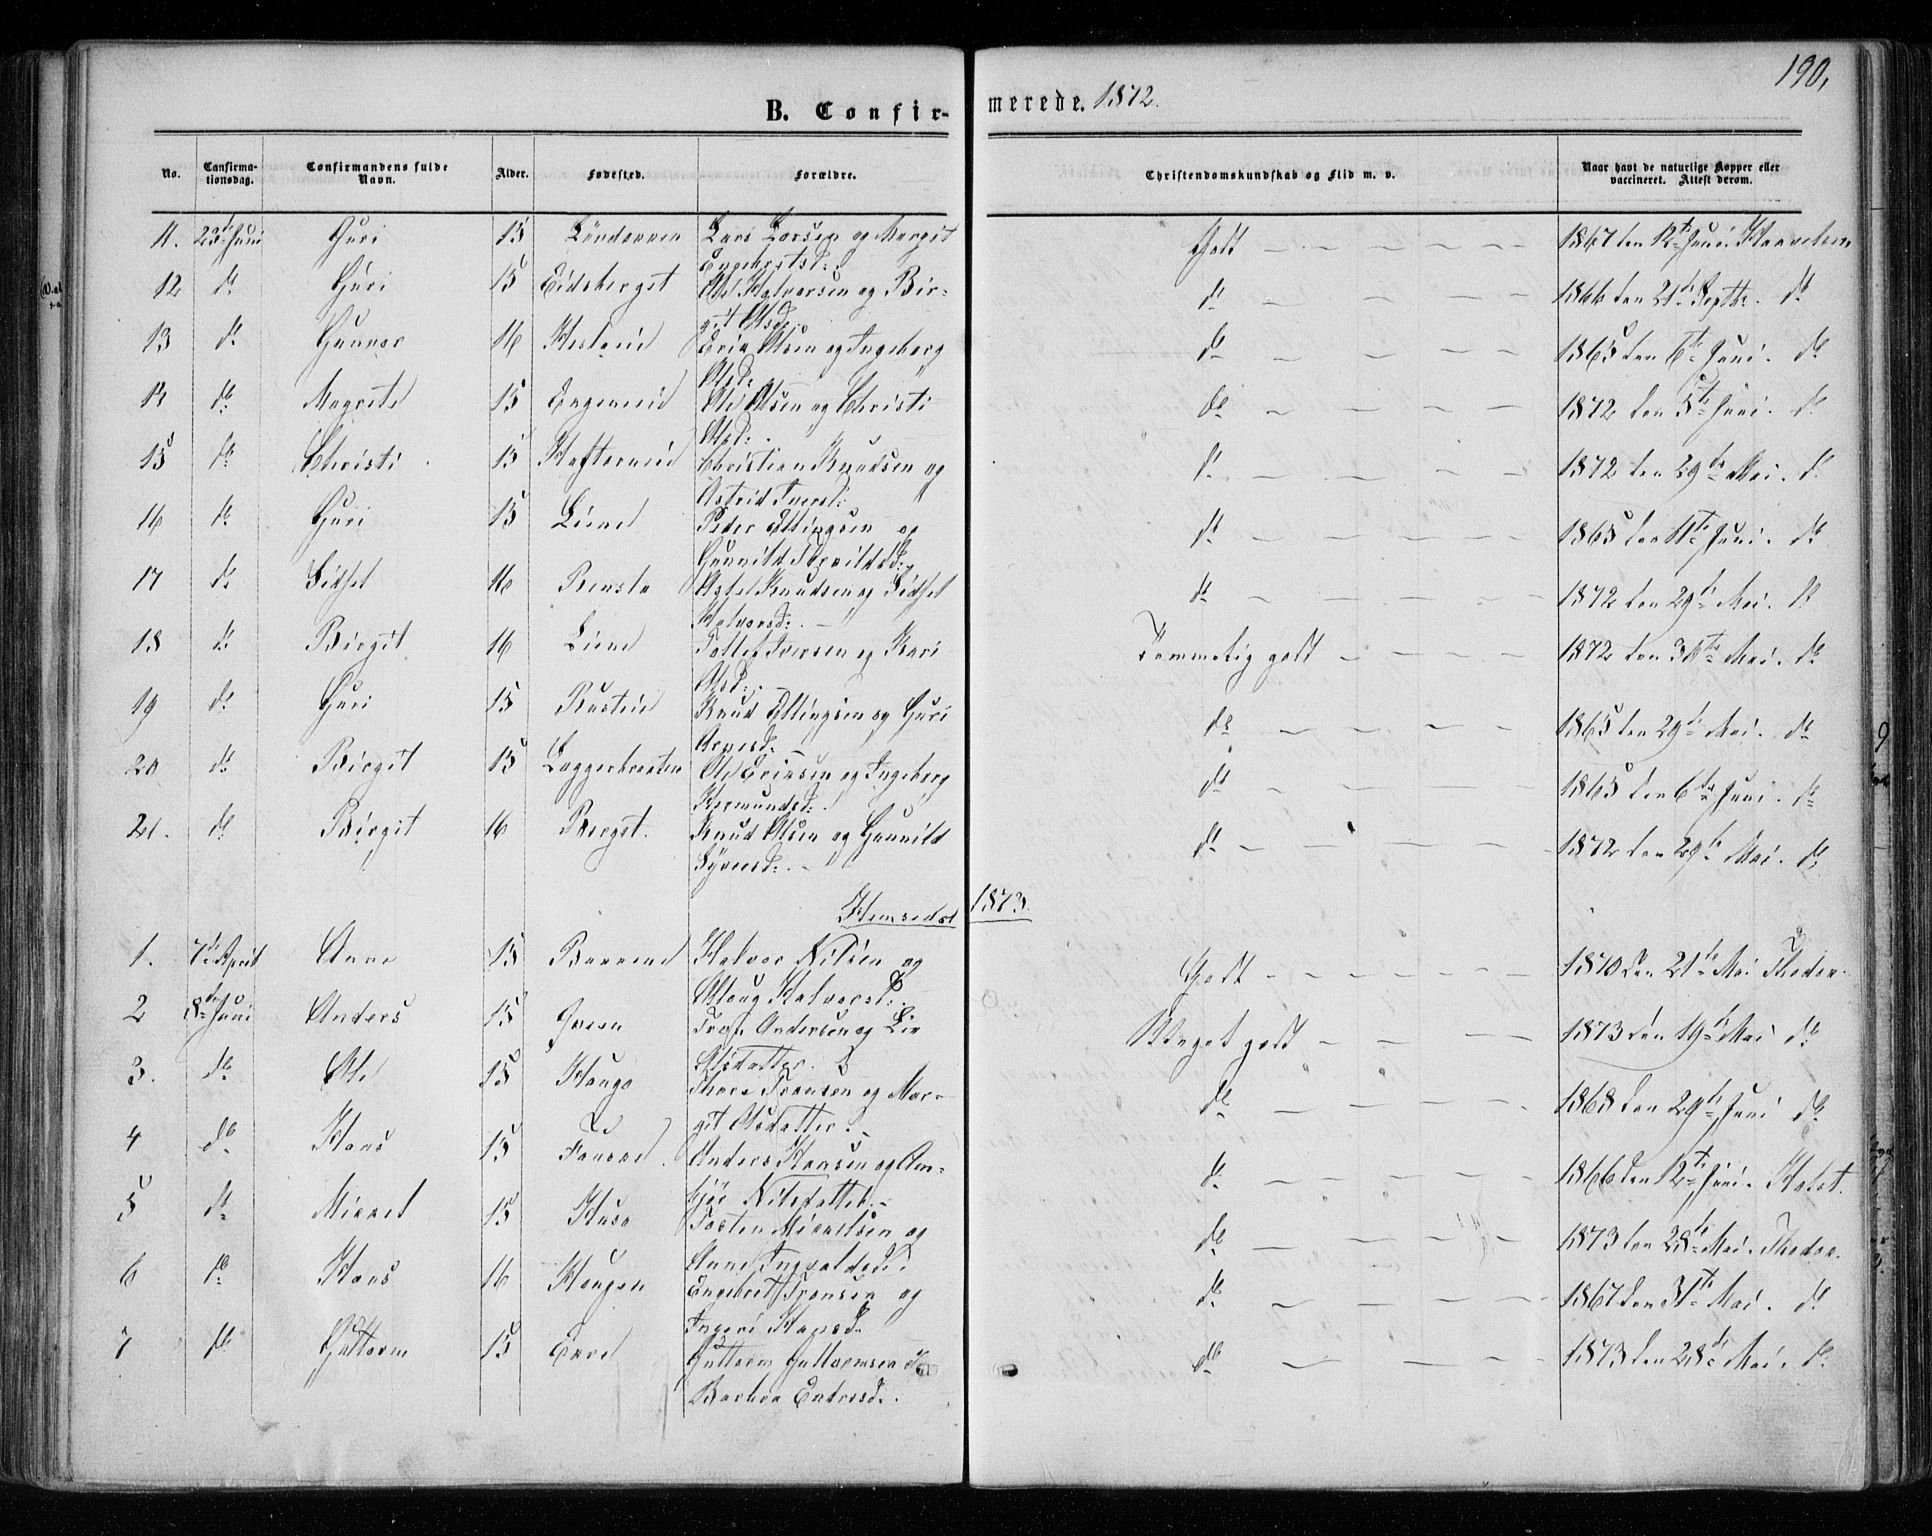 190,
B. Confir- merede. 1872.
No. Confirma-tionsdag. Confirmandens fulde Navn. Alder. Fødested. Forældre. Christendomskundskab og Flid m. v. Naar havt de naturlige Kopper eller vaccineret. Attest derom.
11. 23de Juni Guri 15 Lars Larsen og Margit Godt — — — — — 1867 den 12te Juni
Engebretsd:
12 do Guri 15 Eidsbergst Ole Halvorsen og Bir- do — — — — — 1866 den 21de Septbr. do
git Olsd:
13 do Gunnor 16 Eric Olsen og Ingeborg do — — — — — 1865 den 6te Juni. do
Olsd:
14 do Margrete 15 Engeneie Ole Olsen og Christi do — — — — — 1872 den 5te Juni. do
Olsd:
15 do Christi 15 Hafterneie Christian Knudsen og do — — — — — 1872 den 29de Mai. do
Astrid Iversd:
16 do Guri 15 Liene Peder Ellingsen og do — — — — — 1865 den 11te Juni. do
Gunnild
17 do Sidsel 16 Aslak Knudsen og Sidsel do — — — — — 1872 den 29de Mai. do
Halvorsd:
18 do Birgit 16 Liene Tollef Iversen og Kari Temmelig godt — — — — 1872 den 30te Mai. do
Olsd:
19 do Guri 15 Rusteie Knud Ellingsen og Guri do — — — — — 1865 den 29de Mai. do
Arnesd.
20 do Birgit 15 Ole Ericsen og Ingeborg do — — — — — 1865 den 6te Juni. do
Hermundsd:
21. do Birgit 16 Bergst. Knud Olsen og Gunnild do — — — — — 1872 den 29de Mai. do
Syversd:
Hemsedal 1873.
1. 7de April Anne 15 Halvor Nilsen og Godt — — — — — 1870 den 21de Mai Thedor
Aslaug Halvorsd:
2 8de Juni Anders 15 Grøen Trond Andersen og Liv Meget godt — — — 1873 den 19de Mai do
Olsdatter.
3. do Ole 15 Hauga Thore Tronsen og Mar- do — — — — — 1868 den 29de Juni do
git Olsdatter.
4 do Hans 15 Anders Hansen og Am- do — — — — — 1866 den 12te Juni. Holst.
bjør Nilsdatter.
5 do Mikkel 15 Husa Torsten Mikkelsen og do — — — — — 1873 den 28de Mai. Thedor
Anne Ingvaldsd:
6 do Hans 16 Haugen Engebret Tronsen og do — — — — — 1867 den 31te Mai. do
Ingeri Hansd.
7 do Guttorm 15 Guttorm Guttormsen og do — — — — — 1873 den 28de Mai. do
Barbra Endresd.